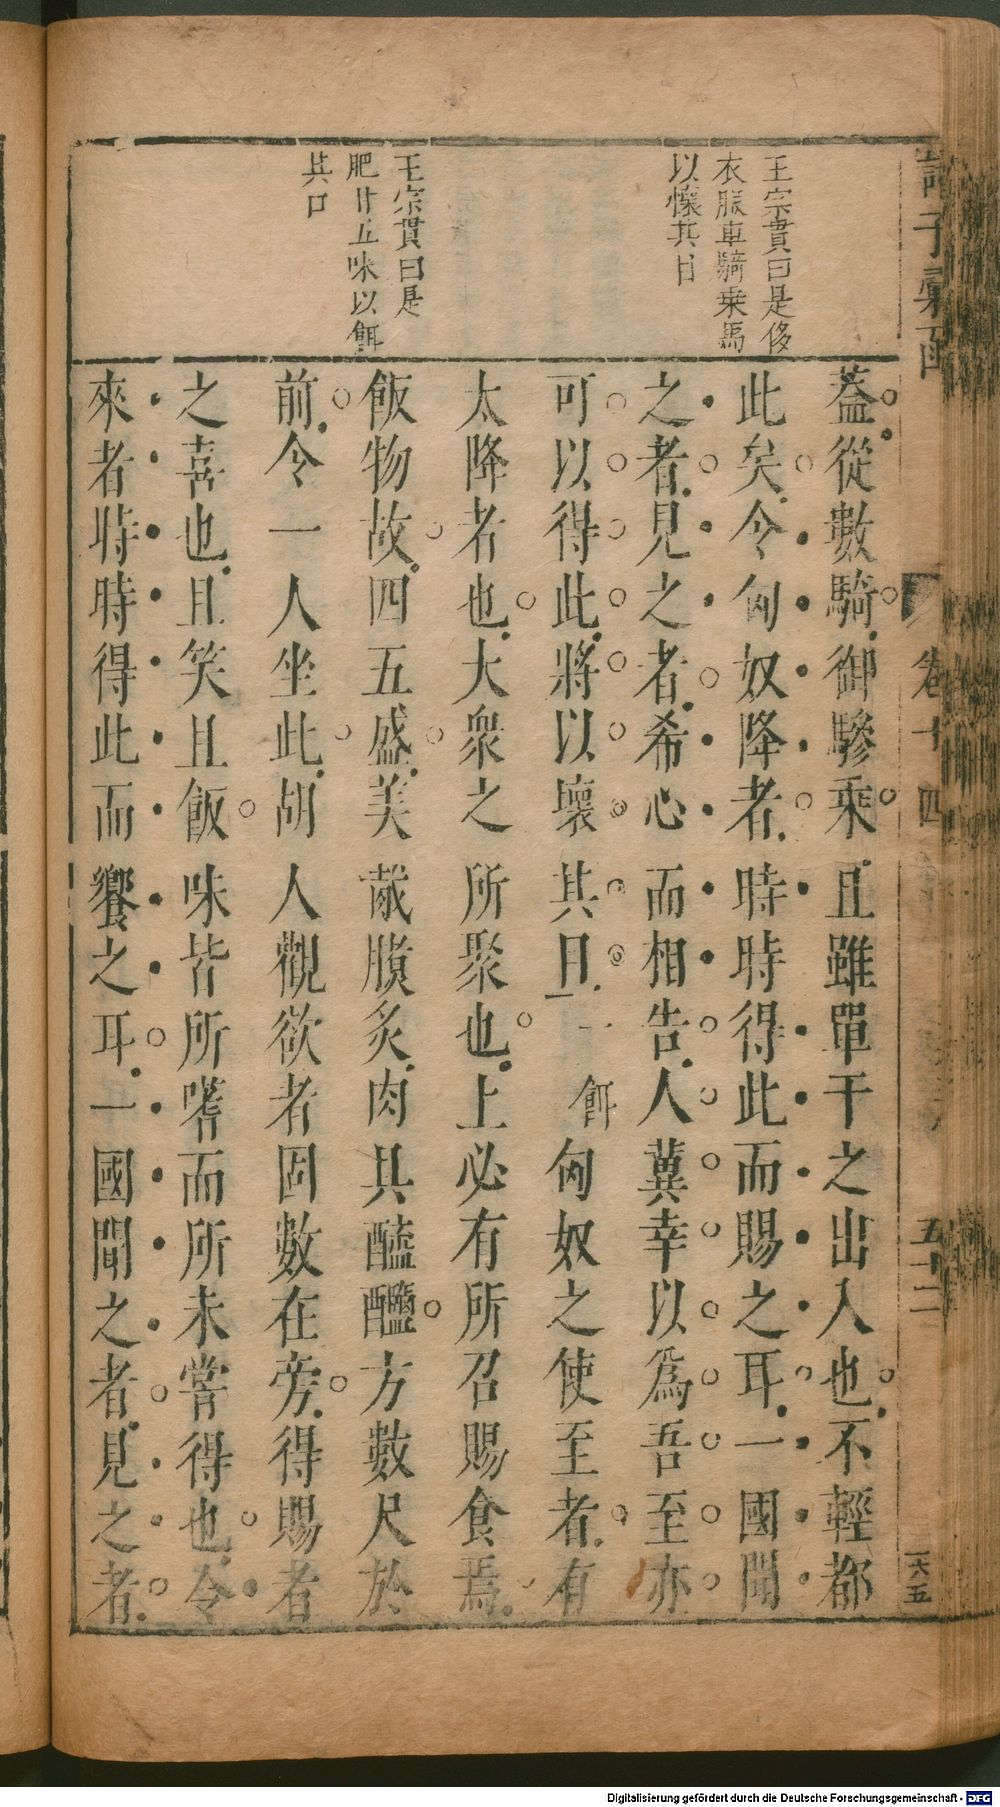 諸子彙函
卷十四
五十二
一六五
王宗貫曰是侈
衣服車騎乗馬
以懷其目
王宗貫曰是
肥甘五味以餌
其口
蓋從數騎御驂乘且雖單于之出入也不輕都
此矣令匈奴降者時時得此而賜之耳一國聞
之者見之者希心而相告人冀幸以爲吾至亦
可以得此將以壞其目一餌匈奴之使至者有
太降者也大衆之所聚也上必有所召賜食焉
飯物故四五盛美胾膹炙肉具醯醢方數尺於
前令一人坐此胡人觀欲者固數在旁得賜者
之喜也且笑且飯味皆所嗜而所未嘗得也令
來者時時得此而饗之耳一國聞之者見之者
Digitalisierung gefördert durch die Deutsche Forschungsgemeinschaft - DFG